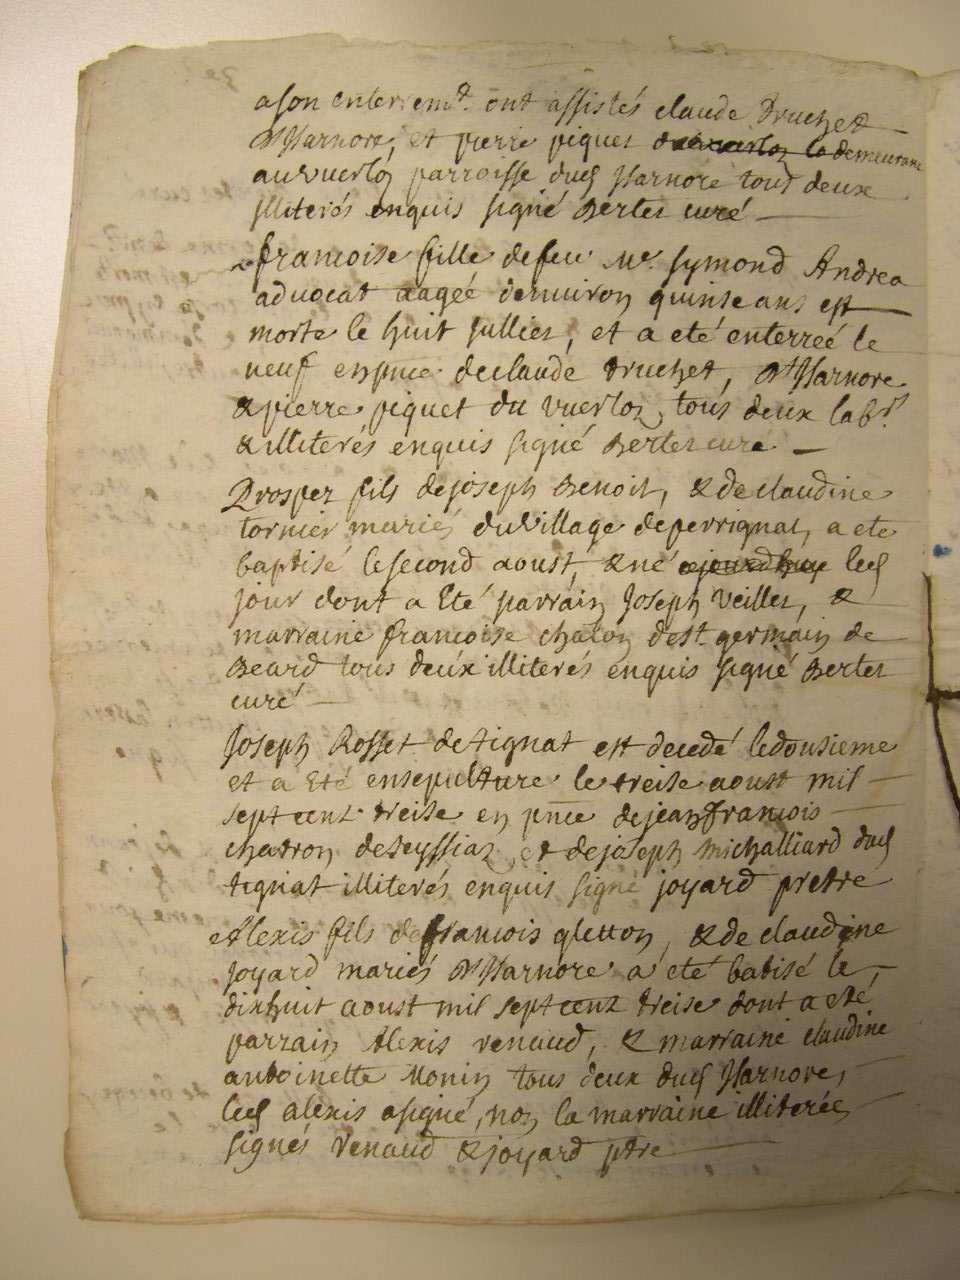 a son enterremt. ont assistés claude Truchet
d'Yzarnore, et pierre piquet demeurant
au vuerloz parroisse dud Yzarnore tous deux
illiterés enquis signé Bertet curé
francoise fille de feu Mr. symond Andrea
advocat aageé denuiron quinse ans est
morte le huit Juillet, et a eté enterreé le
neuf en pnce de claude truchet, d'Yzarnore
& pierre piquet du vuerloz, tous deux labrs.
& illiterés enquis signé Bertet curé
Prosper fils de joseph Benoit, & de claudine
tornier mariés du village de perrignat, a ete
baptisé le second aoust, & né led
jour dont a Eté parrain Joseph Veillet, &
marraine francoise chalon de st. germain de
Beard tous deux illiterés enquis signé Bertet
curé
Joseph Rosset de tignat est decedé le dousieme
et a Eté ensepulturé le treise aoust mil
sept cent treise en pnce de jean francois
chatron de seyssiat, et de joseph michalliard dud
tignat illiterés enquis signé joyard pretre
Alexis fils de francois gletton, & de claudine
joyard mariés d'Yzarnore a eté batisé le
dixhuit aoust mil sept cent treise dont a eté
parrain Alexis renaud, & marraine claudine
antoinette Monin tous deux dud Yzarnore,
led alexis a signé, non la marraine illiterée
signés renaud & joyard ptre